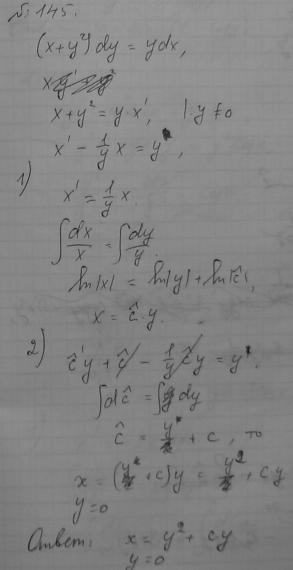 № 145.
(x+y²)dy = ydx,
x+y² = y·x', | y≠0
x' - 1/y x = y,
1)
x' = 1/y x.
∫dx/x = ∫dy/y.
ln|x| = ln|y| + ln|ĉ|,
x = ĉ·y.
2)
ĉ'y + ĉ - 1/y ĉy = y
∫dĉ = ∫dy
ĉ = y + c, то
x = (y+c)y = y² + cy
y=0
Ответ: x = y² + cy
y=0